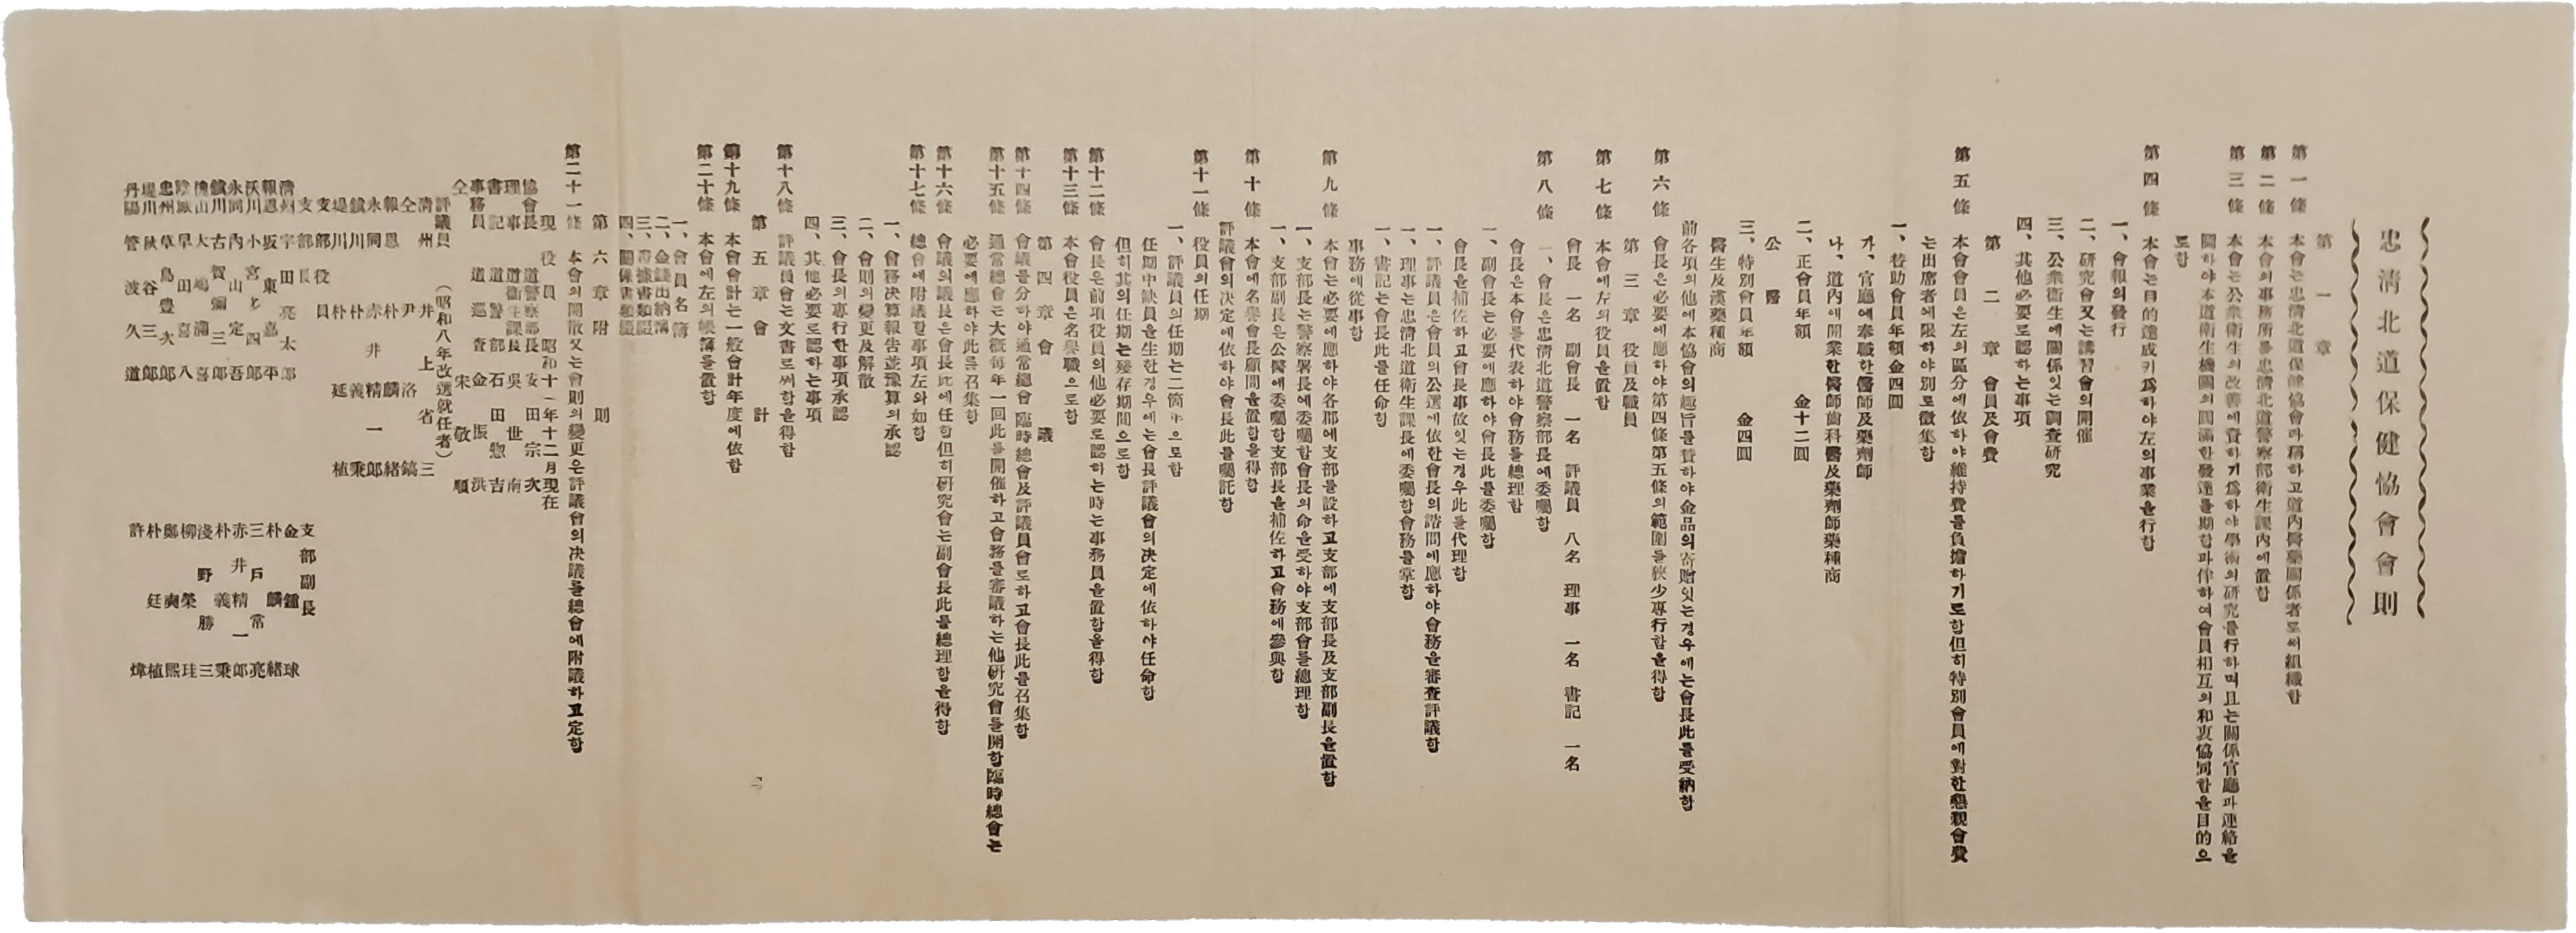 忠淸北道保健協會會則
第一章
第一條 本會는忠淸北道保健協會라稱하고道內醫藥關係者로써組織함
第二條 本會의事務所를忠淸北道警察部衛生課內에置함
第三條 本會는公衆衛生의改善에資하기爲하야學術의硏究를行하며且는關係官廳과連絡을
圖하야本道衛生機關의圓滿한發達를期함과伴하여會員相互의和衷協同함을目的으
로함
第四條 本會는目的達成키爲하야左의事業을行함
一、會報의發行
二、硏究會又는講習會의開催
三、公衆衛生에關係잇는調査硏究
四、其他必要로認하는事項
第二章 會員及會費
第五條 本會會員은左의區分에依하야維持費를負擔하기로함但히特別會員에對한懇親會費
는出席者에限하야別로徵集함
一、賛助會員年額金四圓
가、官廳에奉職한醫師及藥劑師
나、道內에開業한醫師齒科醫及藥劑師藥種商
二、正會員年額 金十二圓
公醫
三、特別會員年額 金四圓
醫生及漢藥種商
前各項의他에本協會의趣旨를賛하야金品의寄贈잇는경우에는會長此를受納함
第六條 會長은必要에應하야第四條第五條의範圍를狹少專行함을得함
第三章 役員及職員
第七條 本會에左의役員을置함
會長 一名 副會長 一名 評議員 八名 理事 一名 書記 一名
第八條 一、會長은忠淸北道警察部長에委囑함
會長은本會를代表하야會務를總理함
一、副會長는必要에應하야會長此를委囑함
會長을補佐하고會長事故잇는경우此를代理함
一、評議員은會員의公選에依한會長의諮問에應하야會務을審査評議함
一、理事는忠淸北道衛生課長에委囑함會務를掌함
一、書記는會長此를任命함
事務에從事함
第九條 本會는必要에應하야各郡에支部를設하고支部에支部長及支部副長을置함
一、支部長는警察署長에委囑함會長의命을受하야支部會를總理함
一、支部副長은公醫에委囑함支部長을補佐하고會務에參與함
第十條 本會에名譽會長顧問을置함을得함
評議會의決定에依하야會長此를囑託함
第十一條 役員의任期
一、評議員의任期는二箇年으로함
任期中缺員을生한경우에는會長評議會의決定에依하야任命함
但히其의任期는殘存期間으로함
第十二條 會長은前項役員의他必要로認하는時는事務員을置함을得함
第十三條 本會役員은名譽職으로함
第四章 會議
第十四條 會議를分하야通常總會 臨時總會及評議員會로하고會長此를召集함
第十五條 通常總會는大槪每年一回此를開催하고會務를審議하는他硏究會를開함臨時總會는
必要에應하야此를召集함
第十六條 會議의議長은會長此에任함但히硏究會는副會長此를總理함을得함
第十七條 總會에附議할事項左와如함
一、會務決算報告並豫算의承認
二、會則의變更及解散
三、會長의專行한事項承認
四、其他必要로認하는事項
第十八條 評議員會는文書로써함을得함
第五章 會計
第十九條 本會會計는一般會計年度에依함
第二十條 本會에左의帳簿를置함
一、會員名簿
二、金錢出納簿
三、證據書類綴
四、關係書類綴
第六章 附則
第二十一條 本會의開散又는會則의變更은評議會의決議를總會에附議하고定함
現役員 昭和十一年十二月現在
協會長 道警察部長 安田宗次
理事 道衛生課長 吳世南
書記 道警部 石田惣吉
事務員 道巡査 金振洪
仝 宋敬順
評議員 (昭和八年改選就任者)
淸州 井上省三
仝 尹洛鎬
報恩 朴麟緖
永同 赤井精一郞
鎭川 朴義秉
堤川 朴廷植
支部役員
支部長
淸州 宇田亮太郞
報恩 坂東嘉平
沃川 小宮多四郞
永同 內山定吾
鎭川 古賀彌三郞
槐山 大嶋浦喜
陰城 早田喜八
忠州 草鳥豊次郞
堤川 秋谷三郞
丹陽 管波久道
支部副長
金鍾球
朴麟緖
三戶常亮
赤井精一郞
朴義秉
淺野勝三
柳榮珪
鄭奭熙
朴廷植
許煒